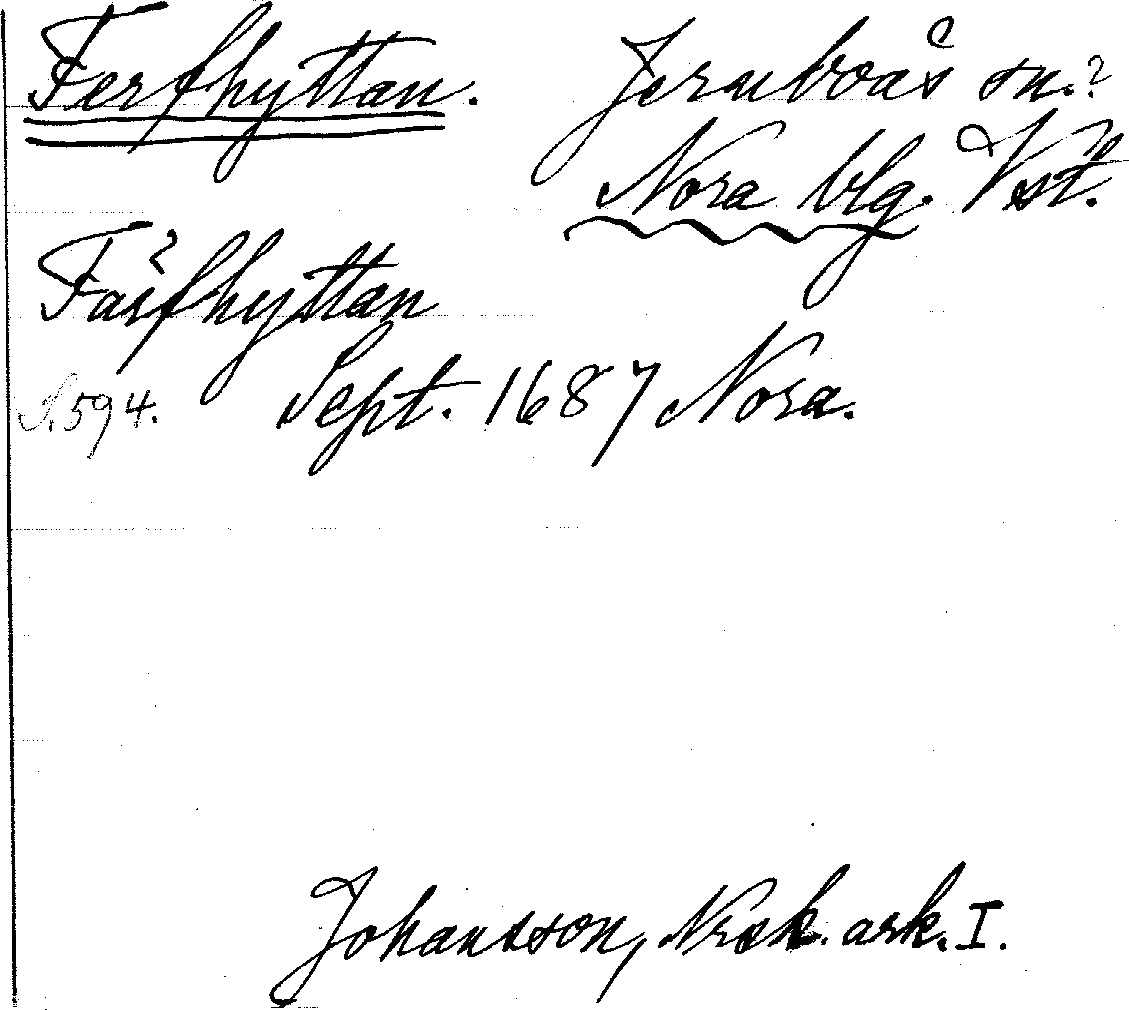 Ferfhyttan. Jernboås sn.?
Nora blg. Vst.
Fàsfhyttan
S. 594. Sept. 1687 Nora.
Johansson, Nrsk. ark. I.